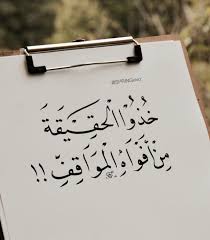 خُذُوْا الْحَقِيْقَةَ
مِنْ أَفْوَاهِ الْمَوَاقِفِ !!